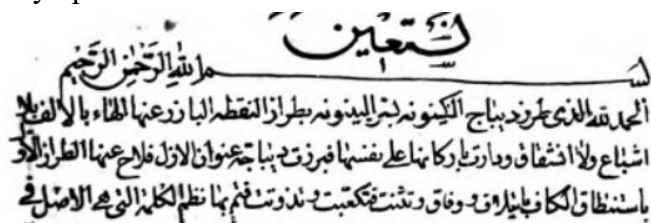 نستعين
بسم الله الرحمن الرحيم
الحمد لله الذى طرز ديباج الكينونة بسر البينونة بطراز النقطة البارز عنها الهاء بالالف بلا
اشباع ولا انشقاق ودارت باركانها على نفسها فبرزت ديباجة عنوان الازل فلاح عنها الطراز الاو
باستنطاق الكاف بخلاف ووفاق وتثنت فتكعبت وتذوتت فتم بها نظم الكلمة التى هى الاصل فى